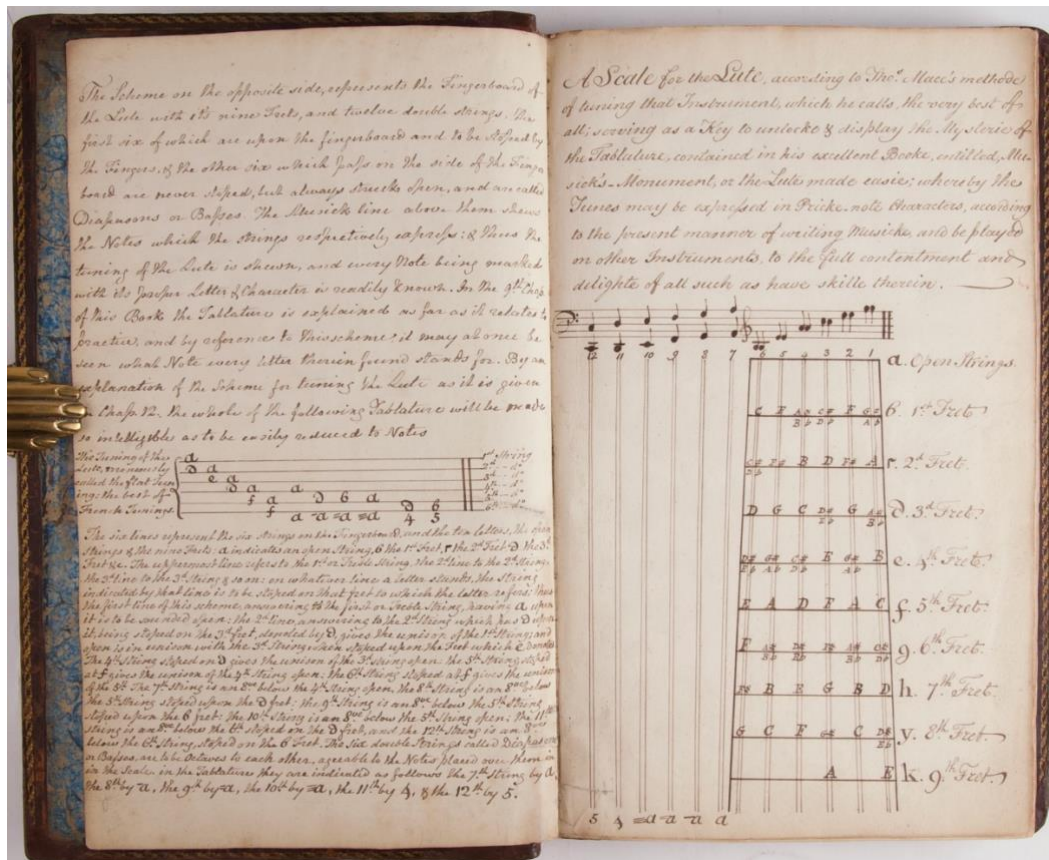 The Scheme on the opposite side, represents the Fingerboard of
the Lute with its nine Frets, and twelve double strings. the
first six of which are upon the fingerboard and to be stopped by
the Fingers, & the other six which pass on the side of the Finger
board are never stoped, but always struck open, and are called
Diapasons or Basses. The Musick line above them shews
the Notes which the strings respectively express: & thus the
tuning of the Lute is shewn, and every Note being marked
with its proper Letter & Character is readily known. In the 9th Chap.
of this Book the Tablature is explained as far as it relates to
practice, and by reference to this scheme it may at once be
seen what Note every letter therein found stands for. By an
explanation of the Scheme for tuning the Lute as it is given
Chap. 12. the whole of the following Tablature will be made
so intelligible as to be easily reduced to Notes
This Tuning of the
Lute, erroneously
called the flat Tun
ing: the best of
French Tunings.
a
d a
e a
d a
f a a d 6 a d 6
f a a a a 4 5
1st String
2d do
3d do
4th do
5th do
6th do
The six lines represent the six Strings on the Fingerboard, and the ten letters, the open
Strings & the nine Frets: a indicates an open String, 6 the 1st Fret, r the 2d Fret d the 3d
Fret &c. The uppermost line refers to the 1st or Treble String, the 2d line to the 2d String,
the 3d line to the 3d String & so on: on whatever line a letter stands, the string
indicated by that line is to be stoped on that fret to which the letter refers: thus
the first line of this scheme, answering to the first or Treble String, having a upon
it is to be sounded open: the 2d line, answering to the 2d String which has d upon
it, being stoped on the 3d fret, denoted by d, gives the unison of the 1st String; and
open is in unison with the 3d String when stoped upon the Fret which e denotes
The 4th String stoped on d gives the unison of the 3d String open: the 5th String stoped
at f gives the unison of the 4th String open. the 6th String stoped at f gives the unison
of the 5th The 7th String is an 8ve below the 4th String open, the 8th String is an 8ve below
the 5th String stoped upon the d fret: the 9th String is an 8ve below the 5th String
stoped upon the 6 fret: the 10th String is an 8ve below the 5th String open; the 11th
string is an 8ve below the 6th stoped on the d fret, and the 12th String is an 8ve
below the 6th String, stoped on the 6 Fret. The Six double Strings called Diapasons
or Basses, are to be Octaves to each other, agreable to the Notes placed over them in
in the Scale: in the Tablature they are indicated as follows the 7th String by a
the 8th by a, the 9th by a, the 10th by a, the 11th by 4, & the 12th by 5.
A Scale for the Lute, according to Thos. Mace's methode
of tuning that Instrument, which he calls, the very best of
all; serving as a Key to unlocke & display the Mysterie of
the Tablature, contained in his excellent Booke, entitled, Mu-
sick's-Monument, or the Lute made easie; whereby the
Tunes may be expressed in Pricke-note Characters, according
to the present manner of writing Musicke, and be played
on other Instruments, to the full contentment and
delighte of all such as have skille therein.
12 11 10 9 8 7 6 5 4 3 2 1
a. Open Strings.
C F A# C# F G# 6. 1st Fret
Bb Db Ab
C# F# B D F# A r. 2d Fret.
Db
D G C D# G A# d. 3d Fret.
Eb Bb
D# G# C# E G# B e. 4th Fret.
Eb Ab Db Ab
E A D F A C f. 5th Fret.
F A# D# F# A# C# g. 6th Fret.
Bb Eb Bb Db
F# B E G B D h. 7th Fret.
G C F G# C D# y. 8th Fret
Eb
A E k. 9th Fret.
5 4 a a a a